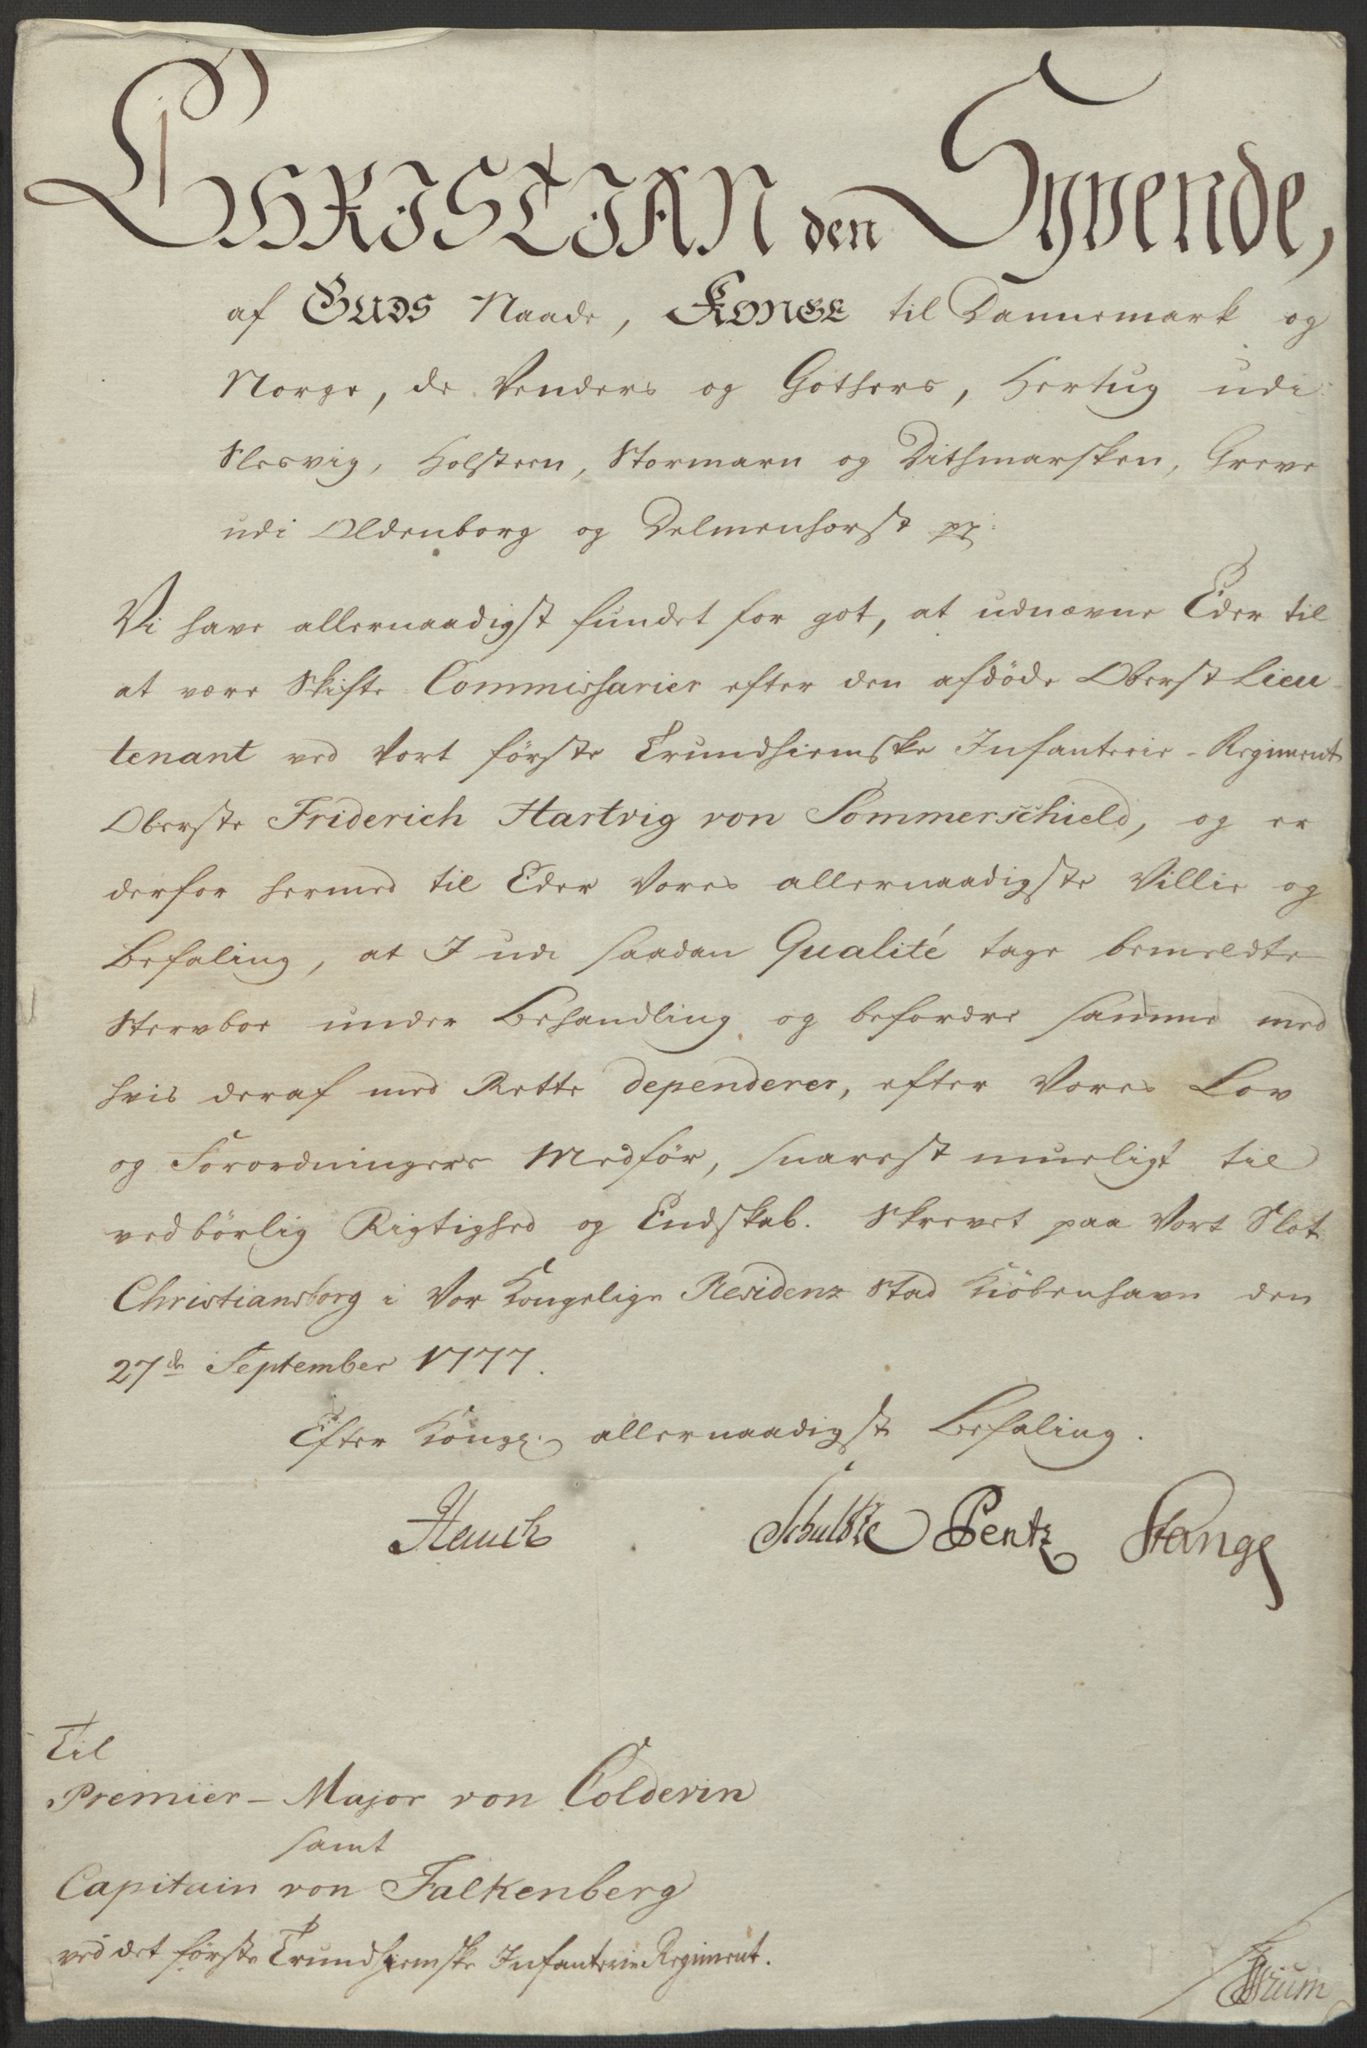 CHRISTIAN den Syvende,
af GUDS Naade, KONGE til Dannemark og
Norge, de Venders og Gothers, Hertug udi
Slesvig, Holsteen, Stormarn og Dithmarsken, Greve
udi Oldenborg og Delmenhorst pp:
Vi have allernaadigst fundet for got, at udnævne Eder til
at være Skifte-Commissarier efter den afdöde Oberst Lieu
tenant ved Vort förste Trundhiemske Infanterie-Regiment
Oberste Friderich Hartvig von Sommerschield, og er
derfor hermed til Eder Vores allernaadigste Villie og
Befaling, at I udi saadan Qualité tage bemeldte
Stervboe under Behandling og befordre samme med
hvis deraf med Rette dependerer, efter Vores Lov
og Forordningers Medför, snarest mueligt til
vedbörlig Rigtighed og Endskab. Skrevet paa Vort Slot
Christiansborg i Vor Kongelige Residenz Stad Kiöbenhavn den
27de September 1777.
Efter Kongl: allernaadigst Befaling.
Hauch Schultze Pentz Stange
Til
Premier-Major von Coldevin
samt
Capitain von Falkenberg
ved det förste Trundhiemske Infanterie Regiment.